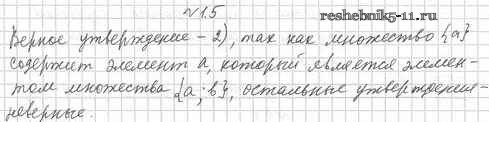 №1.5
reshebnik5-11.ru
Верное утверждение - 2), так как множество {a}
содержит элемент a, который является элемен-
том множества {a; b}, остальные утверждения-
неверные.